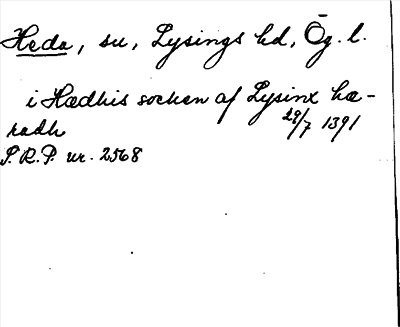 Heda, su, Lysings hd, Ög. l.
i Hædhis sochen af Lysinx hæ-
radh 29/7 1391
S.R.P. nr. 2568